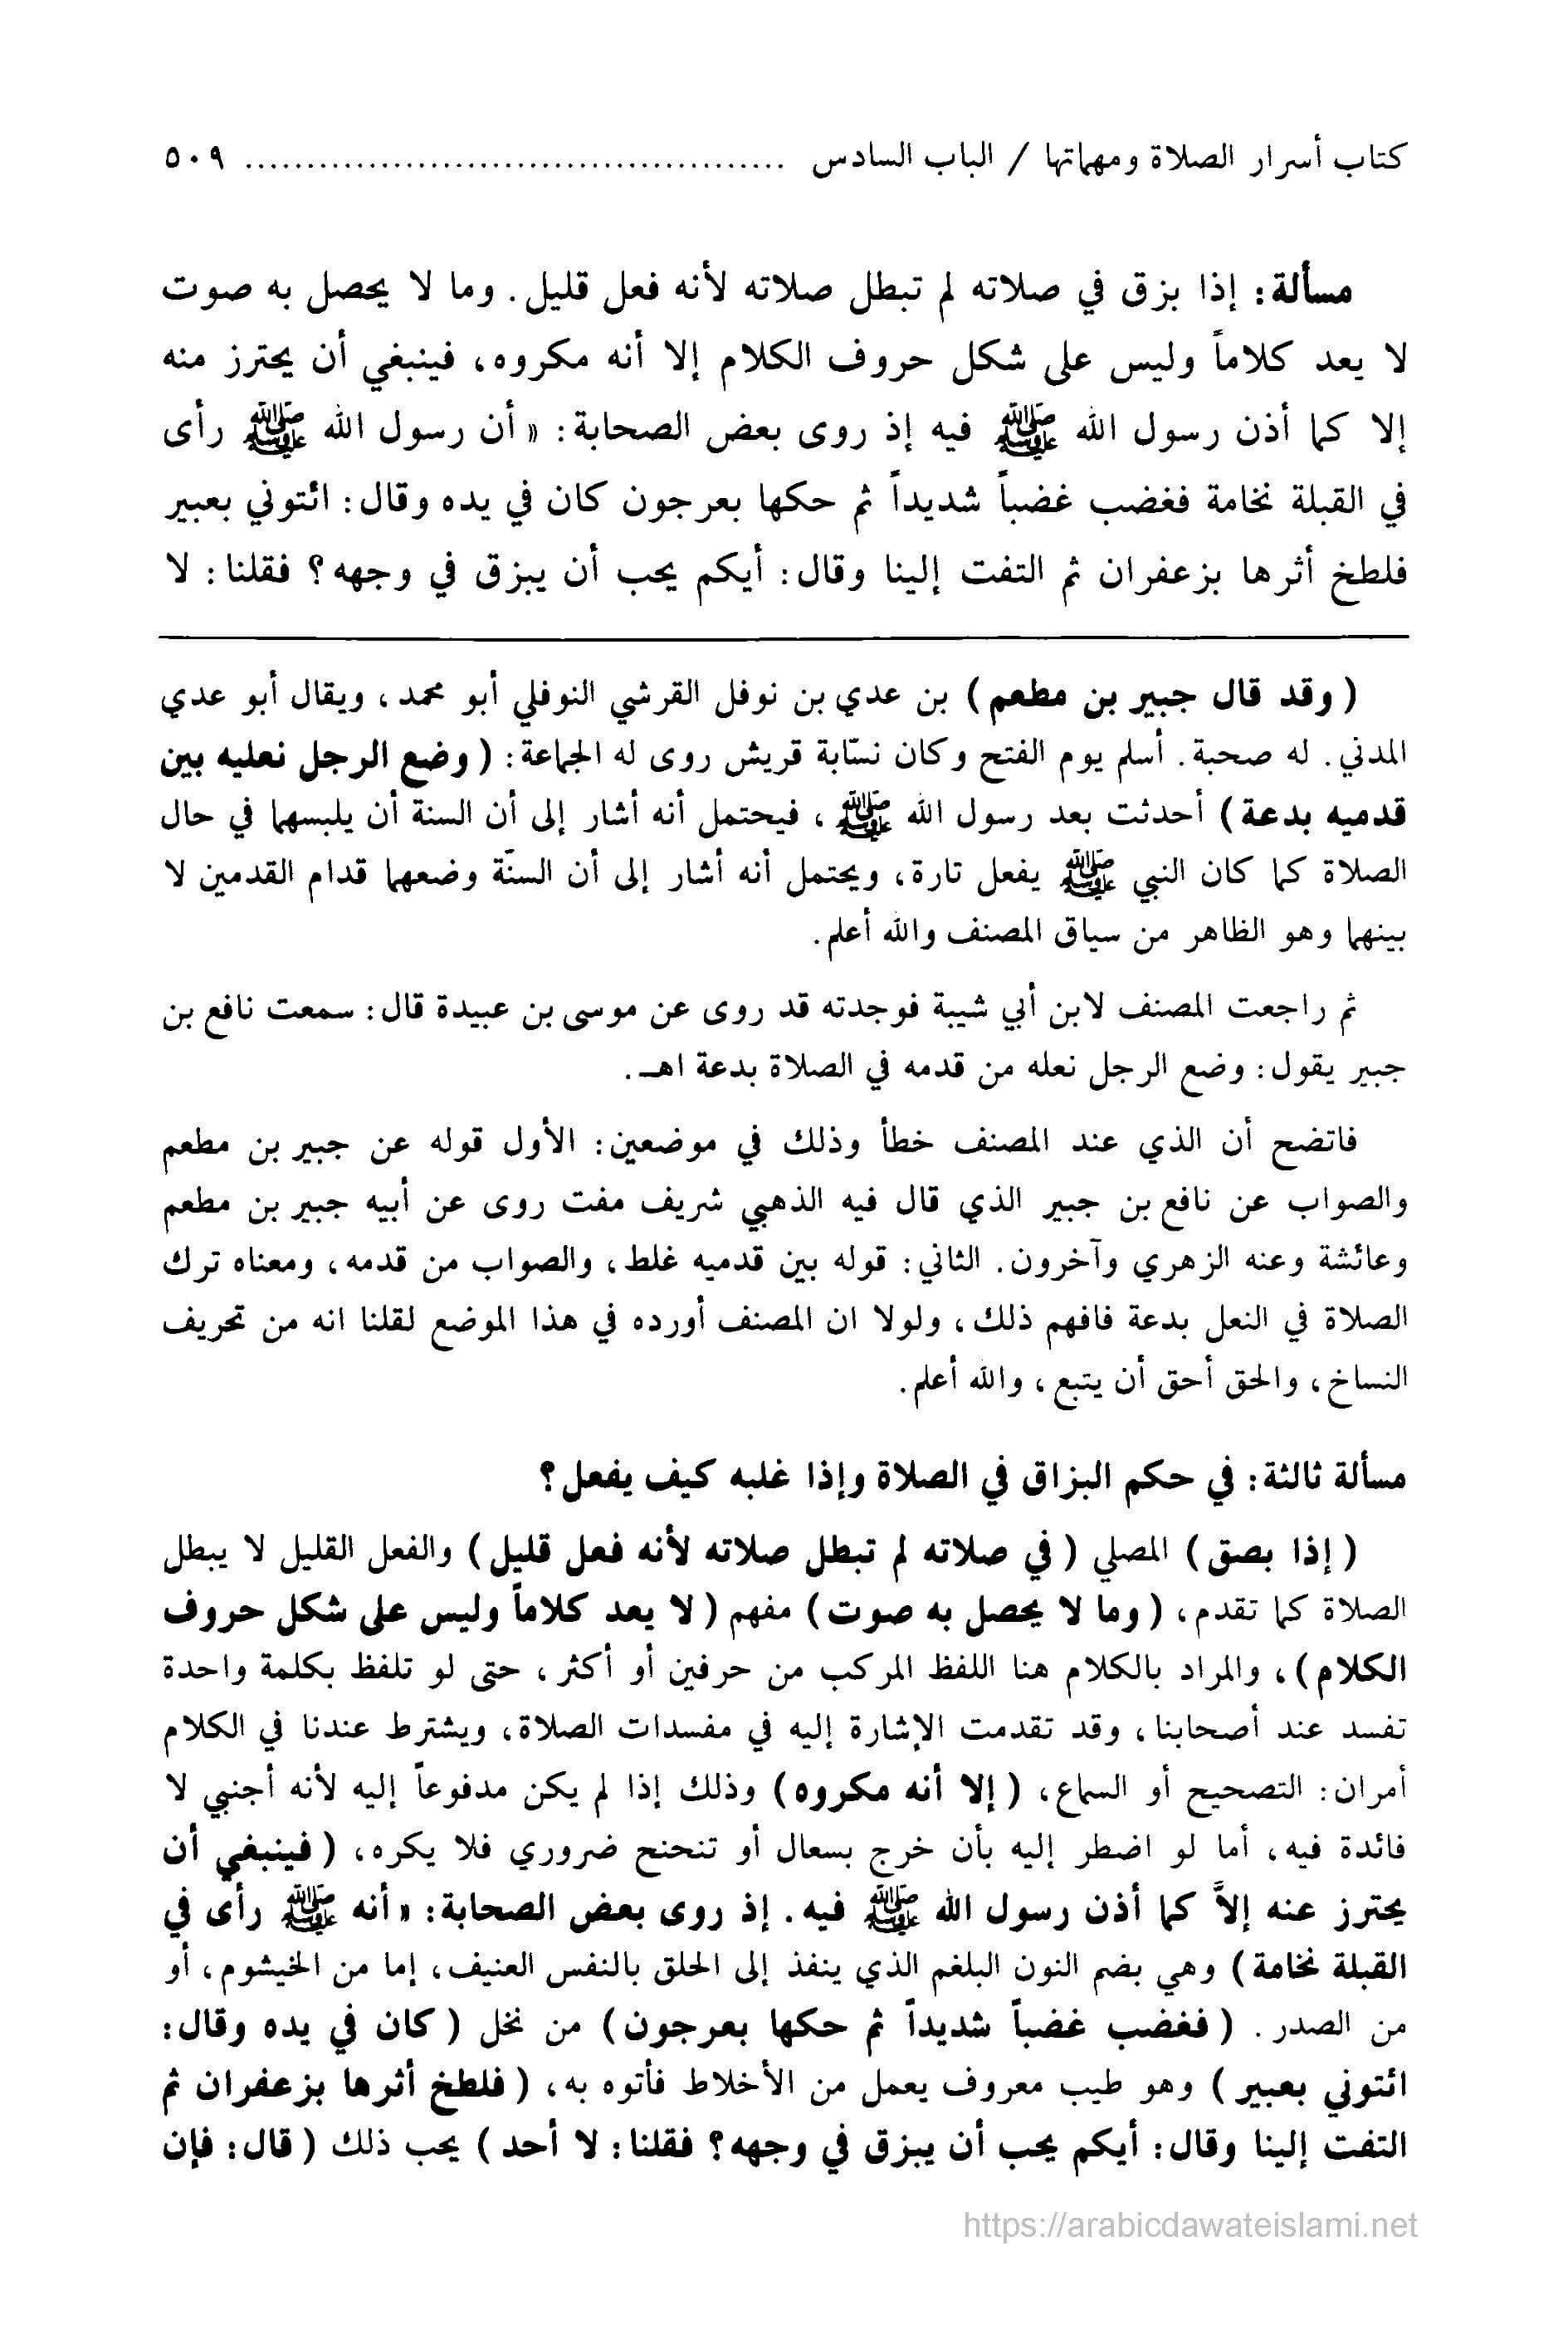 كتاب أسرار الصلاة ومهماتها / الباب السادس ............................................ ٥٠٩
مسألة: إذا بزق في صلاته لم تبطل صلاته لأنه فعل قليل. وما لا يحصل به صوت
لا يعد كلاماً وليس على شكل حروف الكلام إلا أنه مكروه، فينبغي أن يحترز منه
إلا كما أذن رسول الله ﷺ فيه إذ روى بعض الصحابة: « أن رسول الله ﷺ رأى
في القبلة نخامة فغضب غضباً شديداً ثم حكها بعرجون كان في يده وقال: ائتوني بعبير
فلطخ أثرها بزعفران ثم التفت إلينا وقال: أيكم يحب أن يبزق في وجهه؟ فقلنا: لا
( وقد قال جبير بن مطعم ) بن عدي بن نوفل القرشي النوفلي أبو محمد، ويقال أبو عدي
المدني. له صحبة. أسلم يوم الفتح وكان نسّابة قريش روى له الجماعة: ( وضع الرجل نعليه بين
قدميه بدعة ) أحدثت بعد رسول الله ﷺ، فيحتمل أنه أشار إلى أن السنة أن يلبسهما في حال
الصلاة كما كان النبي ﷺ يفعل تارة، ويحتمل أنه أشار إلى أن السنّة وضعهما قدام القدمين لا
بينهما وهو الظاهر من سياق المصنف والله أعلم.
ثم راجعت المصنف لابن أبي شيبة فوجدته قد روى عن موسى بن عبيدة قال: سمعت نافع بن
جبير يقول: وضع الرجل نعله من قدمه في الصلاة بدعة اهـ.
فاتضح أن الذي عند المصنف خطأ وذلك في موضعين: الأول قوله عن جبير بن مطعم
والصواب عن نافع بن جبير الذي قال فيه الذهبي شريف مفت روى عن أبيه جبير بن مطعم
وعائشة وعنه الزهري وآخرون. الثاني: قوله بين قدميه غلط، والصواب من قدمه، ومعناه ترك
الصلاة في النعل بدعة فافهم ذلك، ولولا ان المصنف أورده في هذا الموضع لقلنا انه من تحريف
النساخ، والحق أحق أن يتبع، والله أعلم.
مسألة ثالثة: في حكم البزاق في الصلاة وإذا غلبه كيف يفعل؟
( إذا بصق ) المصلي ( في صلاته لم تبطل صلاته لأنه فعل قليل ) والفعل القليل لا يبطل
الصلاة كما تقدم، ( وما لا يحصل به صوت ) مفهم ( لا يعد كلاماً وليس على شكل حروف
الكلام )، والمراد بالكلام هنا اللفظ المركب من حرفين أو أكثر، حتى لو تلفظ بكلمة واحدة
تفسد عند أصحابنا، وقد تقدمت الإشارة إليه في مفسدات الصلاة، ويشترط عندنا في الكلام
أمران: التصحيح أو السماع، ( إلا أنه مكروه ) وذلك إذا لم يكن مدفوعاً إليه لأنه أجنبي لا
فائدة فيه، أما لو اضطر إليه بأن خرج بسعال أو تنحنح ضروري فلا يكره، ( فينبغي أن
يحترز عنه إلاَّ كما أذن رسول الله ﷺ فيه. إذ روى بعض الصحابة: « أنه ﷺ رأى في
القبلة نخامة ) وهي بضم النون البلغم الذي ينفذ إلى الحلق بالنفس العنيف، إما من الخيشوم، أو
من الصدر. ( فغضب غضباً شديداً ثم حكها بعرجون ) من نخل ( كان في يده وقال:
ائتوني بعبير ) وهو طيب معروف يعمل من الأخلاط فأتوه به، ( فلطخ أثرها بزعفران ثم
التفت إلينا وقال: أيكم يحب أن يبزق في وجهه؟ فقلنا: لا أحد ) يحب ذلك ( قال: فإن
https://arabicdawateislami.net